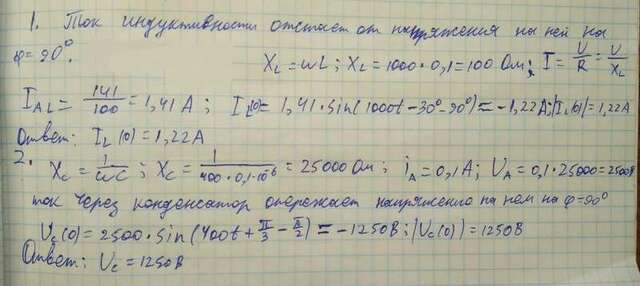 1. Ток индуктивности отстает от напряжения на ней на
φ=90°.
X_L = ωL ; X_L = 1000 · 0,1 = 100 Ом ; I = U/R = U/X_L
I_AL = 141/100 = 1,41 A ; I_L(0) = 1,41 · sin(1000t - 30° - 90°) = -1,22 A ; |I_L(0)| = 1,22 A
Ответ: I_L(0) = 1,22 A
2. X_C = 1/ωC ; X_C = 1/400·0,1·10^-6 = 25000 Ом ; i_A = 0,1 A ; U_A = 0,1 · 25000 = 2500 В
ток через конденсатор опережает напряжение на нем на φ=90°
U_C(0) = 2500 · sin(400t + π/3 - π/2) = -1250 В ; |U_C(0)| = 1250 В
Ответ: U_C = 1250 В